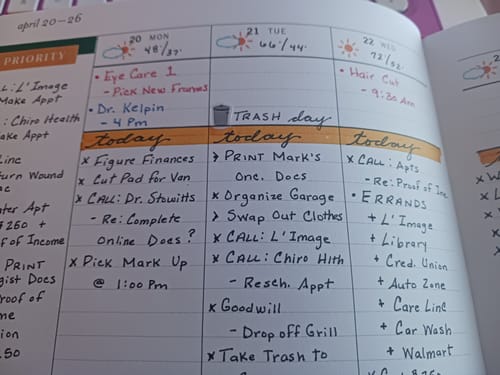 april 20-26
PRIORITY
L: L'Image
Make Appt
: Chiro Health
ake Appt
Linc
turn Wound
ater Apt
$250 +
f of Income
PRINT
gist Docs
roof of
me
ion
.50
20 MON
48°/37°
• Eye Care 1
- Pick New Frames
• Dr. Kelpin
- 4 Pm
today
x Figure Finances
x Cut Pad for Van
x CALL: Dr. Stowitts
- Re: Complete
Online Docs?
x Pick Mark Up
@ 1:00 Pm
21 TUE
66°/44°
TRASH day
today
> PRINT Mark's
One. Docs
x Organize Garage
> Swap Out Clothes
x CALL: L'Image
x CALL: Chiro Hlth
- Resch. Appt
x Goodwill
- Drop off Grill
x Take Trash to
22 WED
72°/52°
• Hair Cut
- 9:30 Am
today
x CALL: Apts
- Re: Proof of Inc
• ERRANDS
+ L'Image
+ Library
+ Cred. Union
+ Auto Zone
+ Care Linc
+ Car Wash
+ Walmart